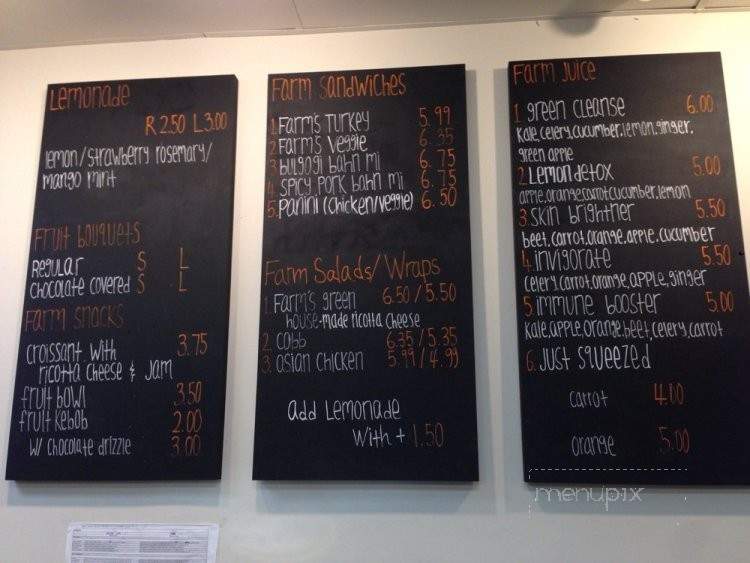 Lemonade
R 2.50 L 3.00
lemon/strawberry rosemary/
mango mint
Fruit bouquets
Regular S L
chocolate covered S L
Farm snacks
croissant with 3.75
ricotta cheese & Jam
fruit bowl 3.50
fruit kebob 2.00
w/ chocolate drizzle 3.00
Farm Sandwiches
1. Farm's Turkey 5.99
2. Farm's Veggie 6.35
3. bulgogi bahn mi 6.75
4. spicy pork bahn mi 6.75
5. Panini (chicken/veggie) 6.50
Farm Salads/Wraps
1. Farm's green 6.50/5.50
house-made ricotta cheese
2. cobb 6.35/5.35
3. asian chicken 5.99/4.99
add Lemonade
with + 1.50
Farm Juice
1 green cleanse 6.00
kale, celery, cucumber, lemon, ginger,
green apple
2. Lemon detox 5.00
apple, orange, carrot, cucumber, lemon
3. skin brightner 5.50
beet, carrot, orange, apple, cucumber
4. invigorate 5.50
celery, carrot, orange, apple, ginger
5. immune booster 5.00
kale, apple, orange, beet, celery, carrot
6. Just squeezed
carrot 4.00
orange 5.00
menupix